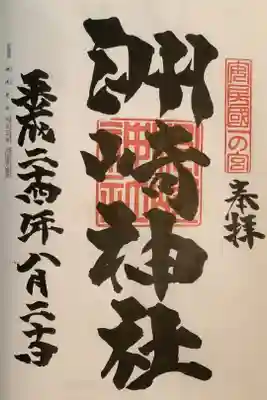 安房國一の宮
奉拝
洲崎神社
平成二十四年八月二十日